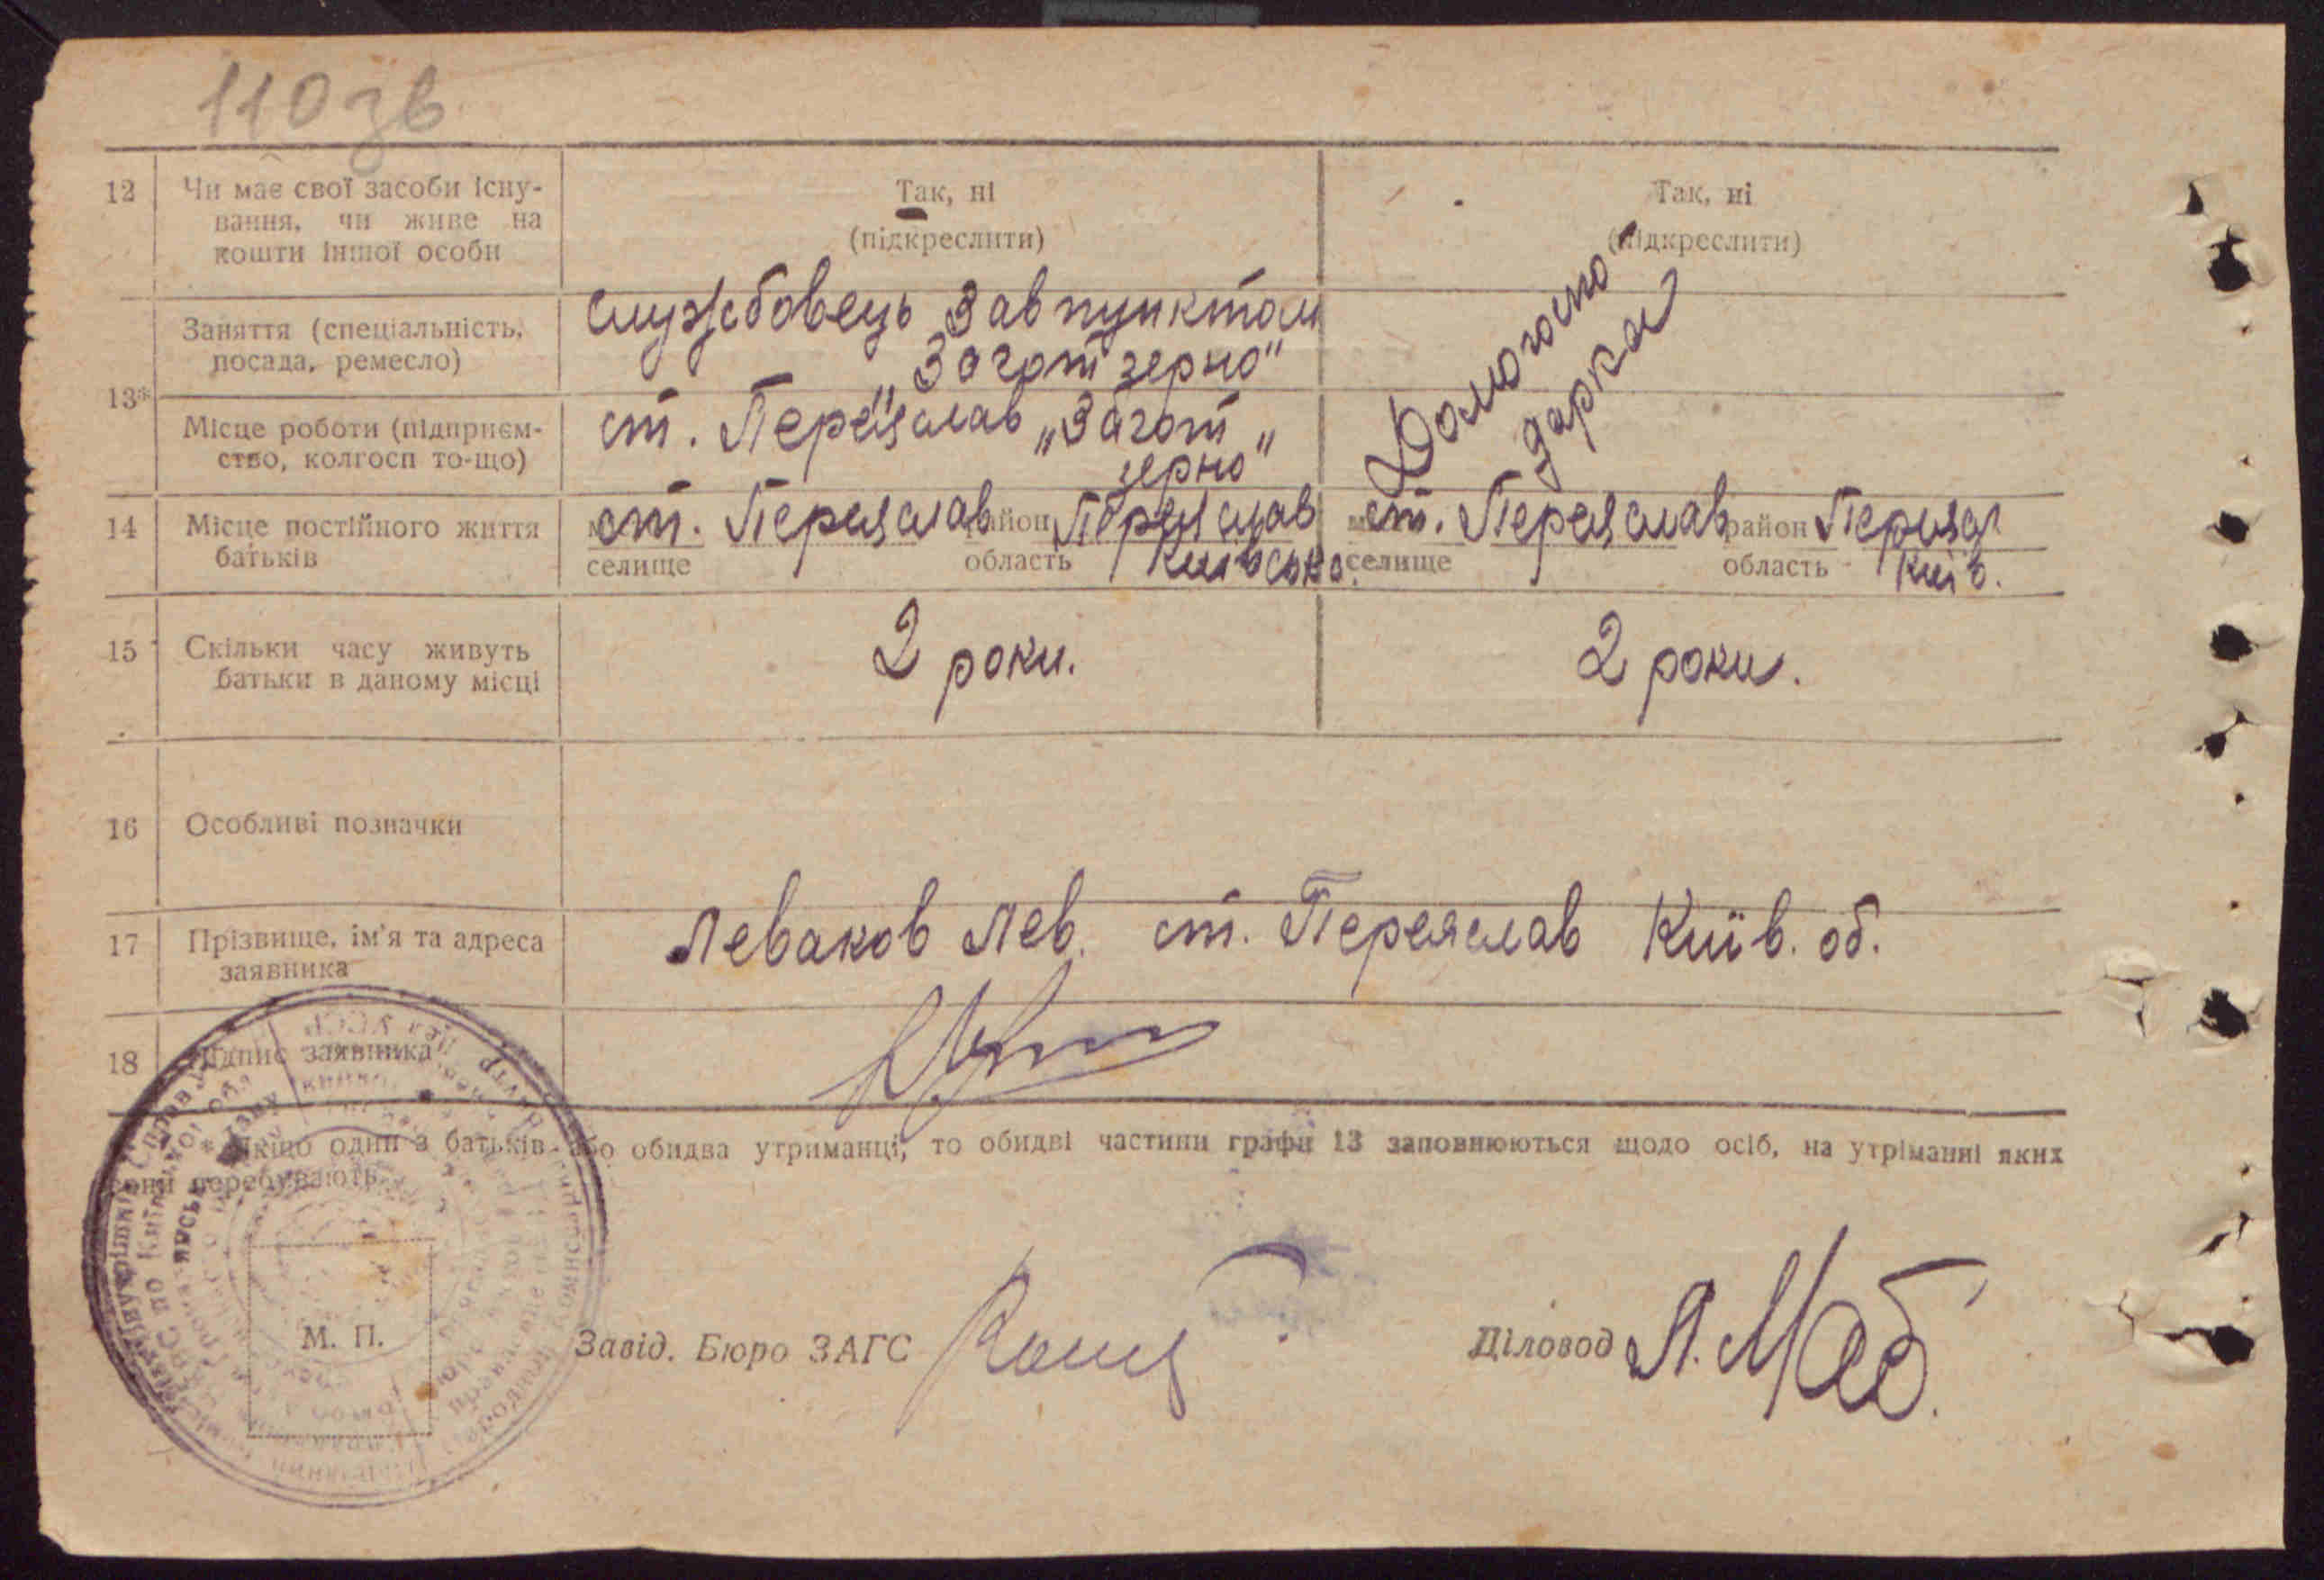 110 зв
12 Чи має свої засоби існу- Так, ні Так, ні
вання, чи живе на (підкреслити) (підкреслити)
кошти іншої особи
службовець Завпунктом
Заняття (спеціальність, „Загот зерно"
посада, ремесло)
Домогоспо-
дарка
13*
Місце роботи (підприєм- ст. Переяслав „Загот
ство, колгосп то-що) зерно"
14 Місце постійного життя ст. Переяслав район Переяслав ст. Переяслав район Переясл
батьків селище область Київська. селище область Київ.
15 Скільки часу живуть 2 роки. 2 роки.
батьки в даному місці
16 Особливі позначки
17 Прізвище, ім'я та адреса Леваков Лев. ст. Переяслав Київ. об.
заявника
18 Підпис заявника
Якщо один з батьків або обидва утриманці, то обидві частини графи 13 заповнюються щодо осіб, на утріманні яких
вони перебувають.
М. П.
Завід. Бюро ЗАГС
Діловод